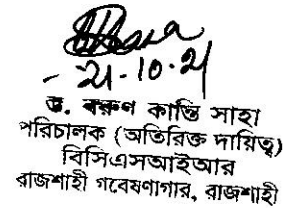 - 21.10.21
ড. বরুণ কান্তি সাহা
পরিচালক (অতিরিক্ত দায়িত্ব)
বিসিএসআইআর
রাজশাহী গবেষণাগার, রাজশাহী